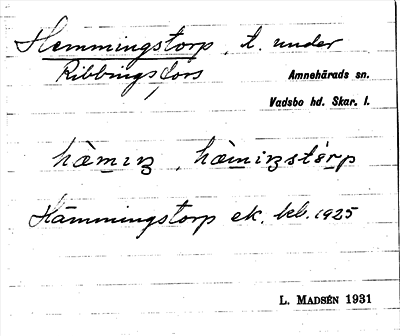 Hemmingstorp, t. under
Ribbingsfors
Amnehärads sn.
Vadsbo hd. Skar. l.
hæ̀mɪŋ, hæ̀mɪŋstɵrp
Hämmingstorp ek. kb. 1925
L. MADSÉN 1931